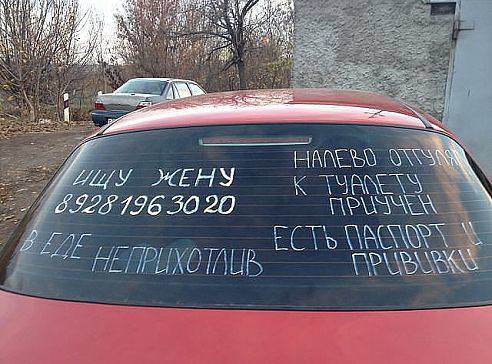 ИЩУ ЖЕНУ
89281963020
В ЕДЕ НЕПРИХОТЛИВ
НАЛЕВО ОТГУЛЯЛ
К ТУАЛЕТУ
ПРИУЧЕН
ЕСТЬ ПАСПОРТ И
ПРИВИВКИ